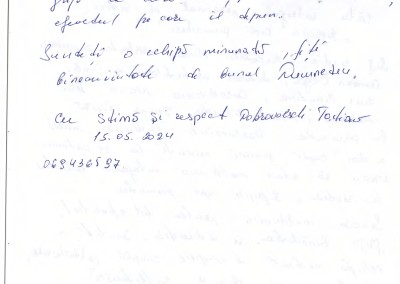 efortul pe care îl depun.
Sunteți o echipă minunată, fiți
binecuvîntate de bunul Dumnezeu.
Cu stimă și respect Dobrovolschi Tatiana
15.05.2024
069436597